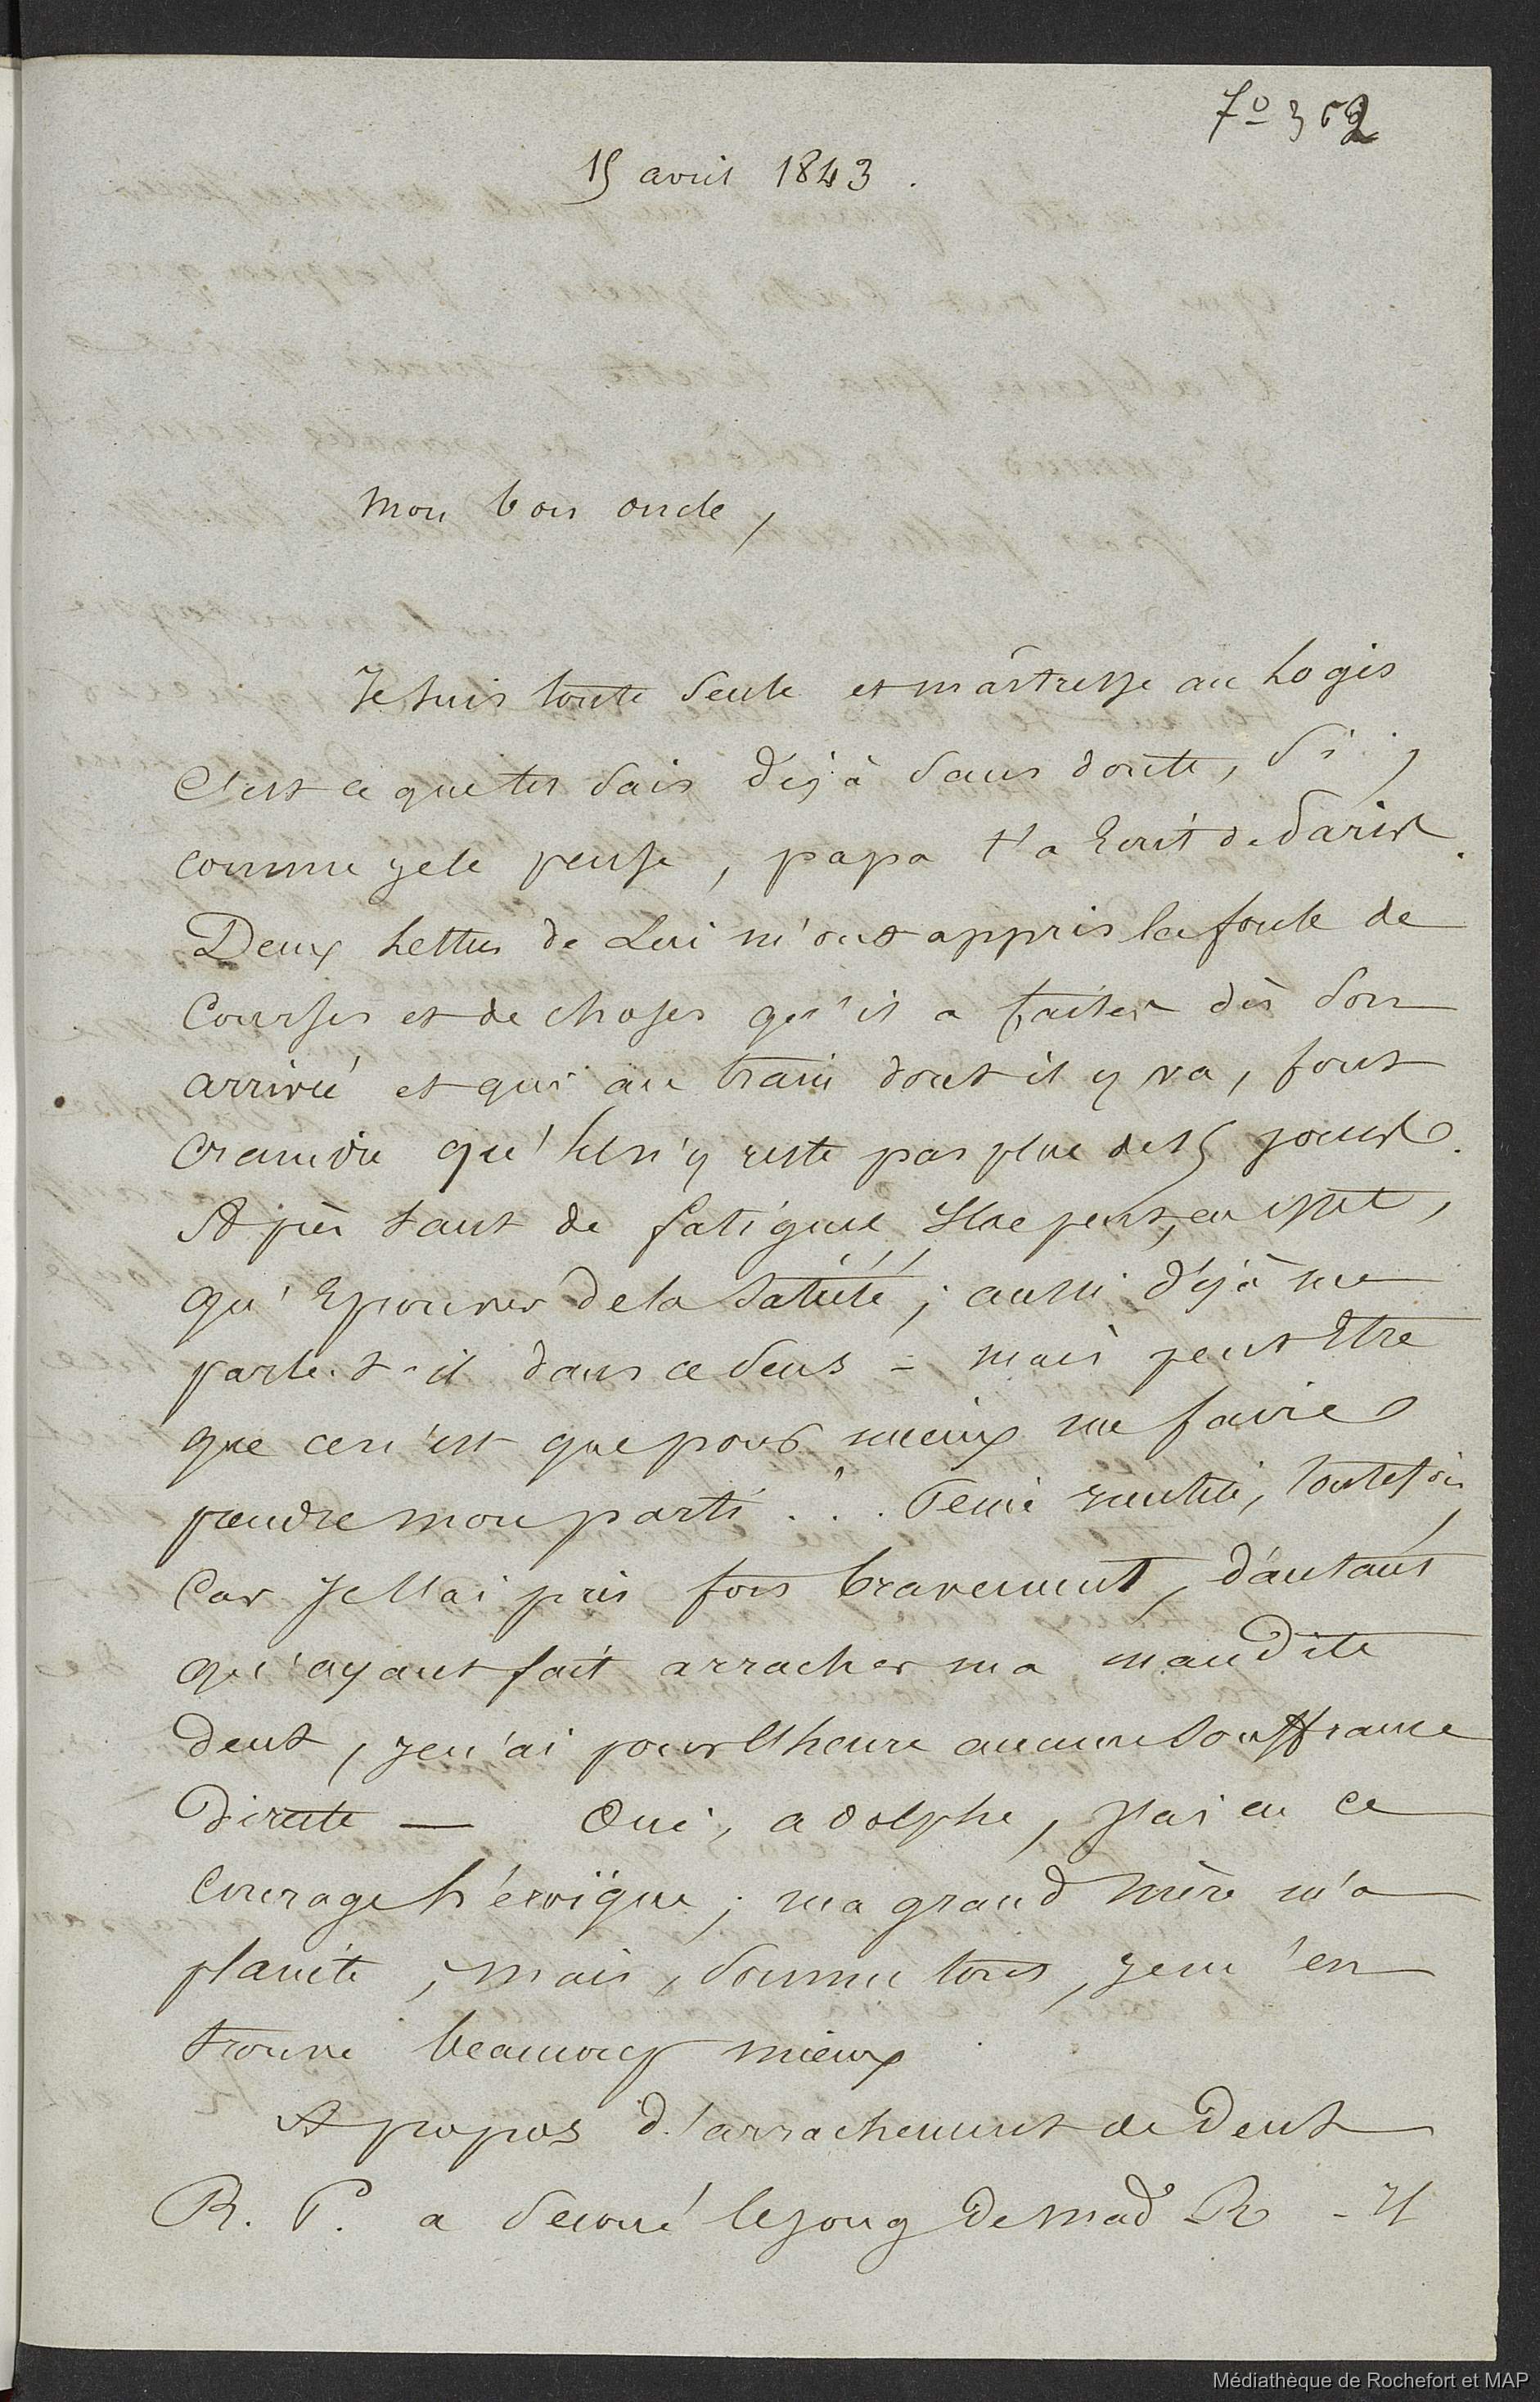 fo 362
15 avril 1843.
Mon bon oncle,
Je suis toute seule et maîtresse au Logis
C'est ce que tu sais déjà sans doute, si,
comme je le pense, papa t'a Ecrit de Paris.
Deux Lettres de Lui m'ont appris la foule de
Courses et de choses qu'il a faites dès son
arrivée et qui au train dont il y va, font
craindre qu'Il n'y reste pas plus de 15 jours.
Après tant de fatigues Il ne peut, en effet,
qu'Eprouver de la Satiété ; aussi déjà me
parle-t-il dans ce sens = mais peut Etre
que ce n'est que pour mieux me faire
prendre mon parti ... Peine inutile, toutefois,
Car Je l'ai pris fort bravement, d'autant
qu'ayant fait arracher ma maudite
dent, je n'ai pour l'heure aucune souffrance
Directe — Oui, adolphe, J'ai eu ce
Courage héroïque ; ma grand mère m'a
plainte, mais, somme tout, je m'en
trouve beaucoup mieux
A propos d'arrachement de Dent
R. P. a secoué le joug de mad R - Il
Médiathèque de Rochefort et MAP